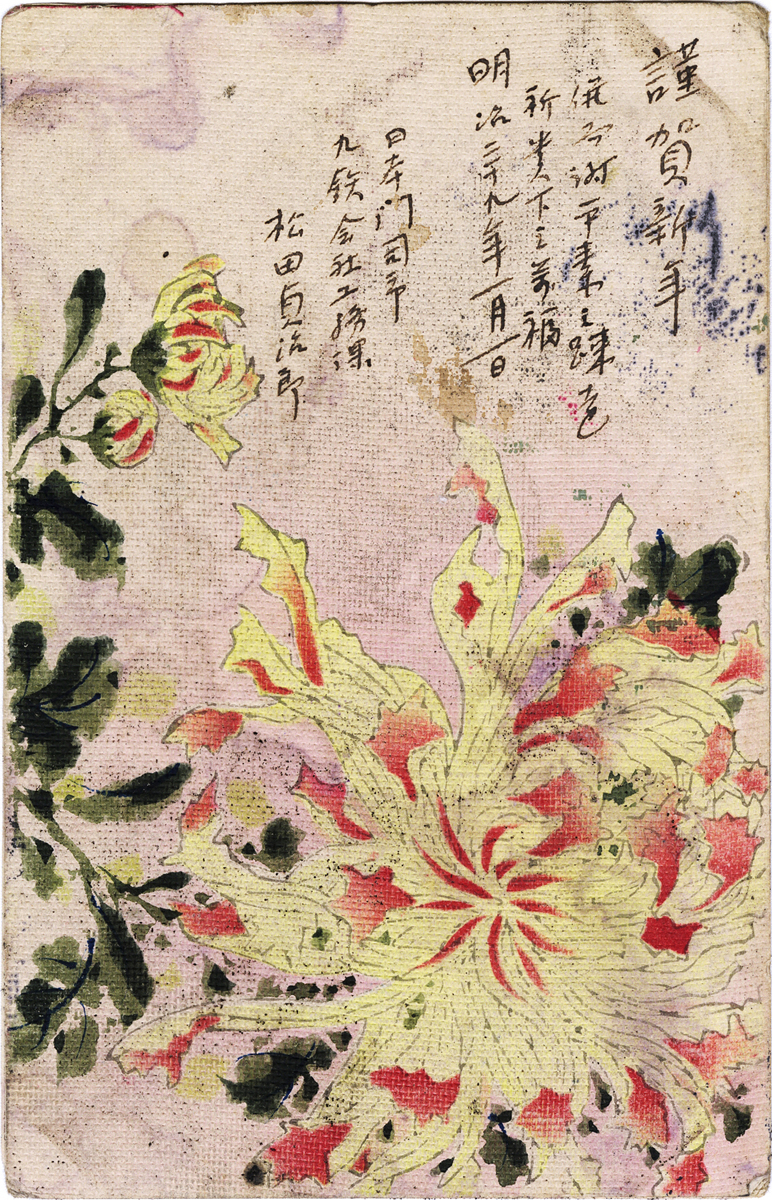 謹賀新年
併而謝平素之疎遠
祈貴下之萬福
明治三十九年一月一日
日本門司市
九鉄会社工務課
松田貞治郎